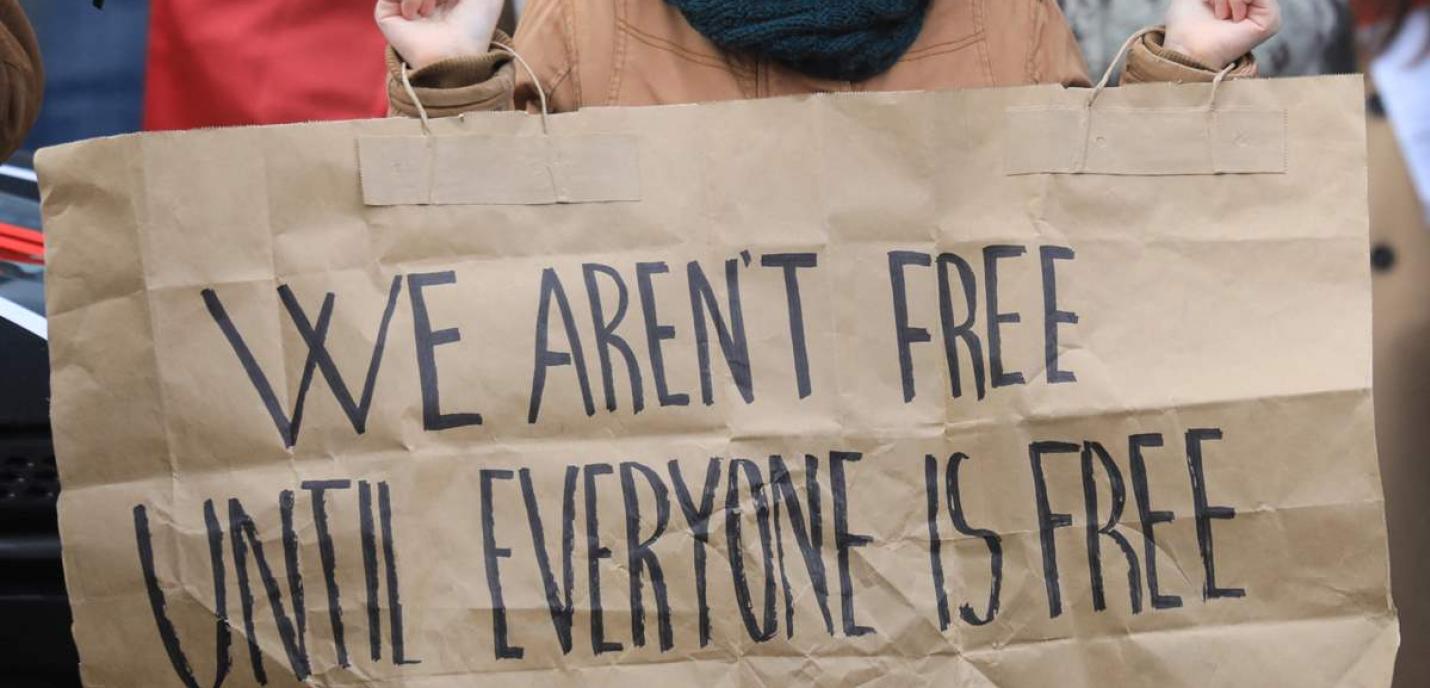 WE AREN'T FREE
UNTIL EVERYONE IS FREE